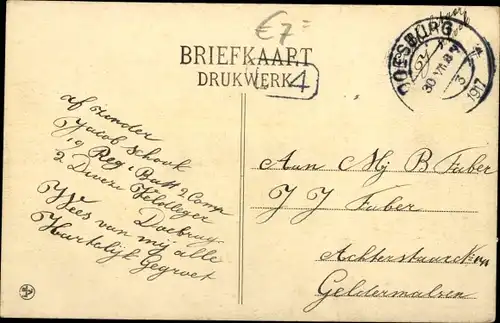 €7-
DOESBURG
30 VII. 8-9
3
1917
BRIEFKAART
DRUKWERK
4
afzender
Jacob Schouk
19 Reg 1 Batt 2 Comp
2 Divizi Veldleger
Doebrug
Wees van mij alle
Hartelijk gegroet
Aan Mj B Faber
J J Faber
Achterstraat No
Geldermalsen